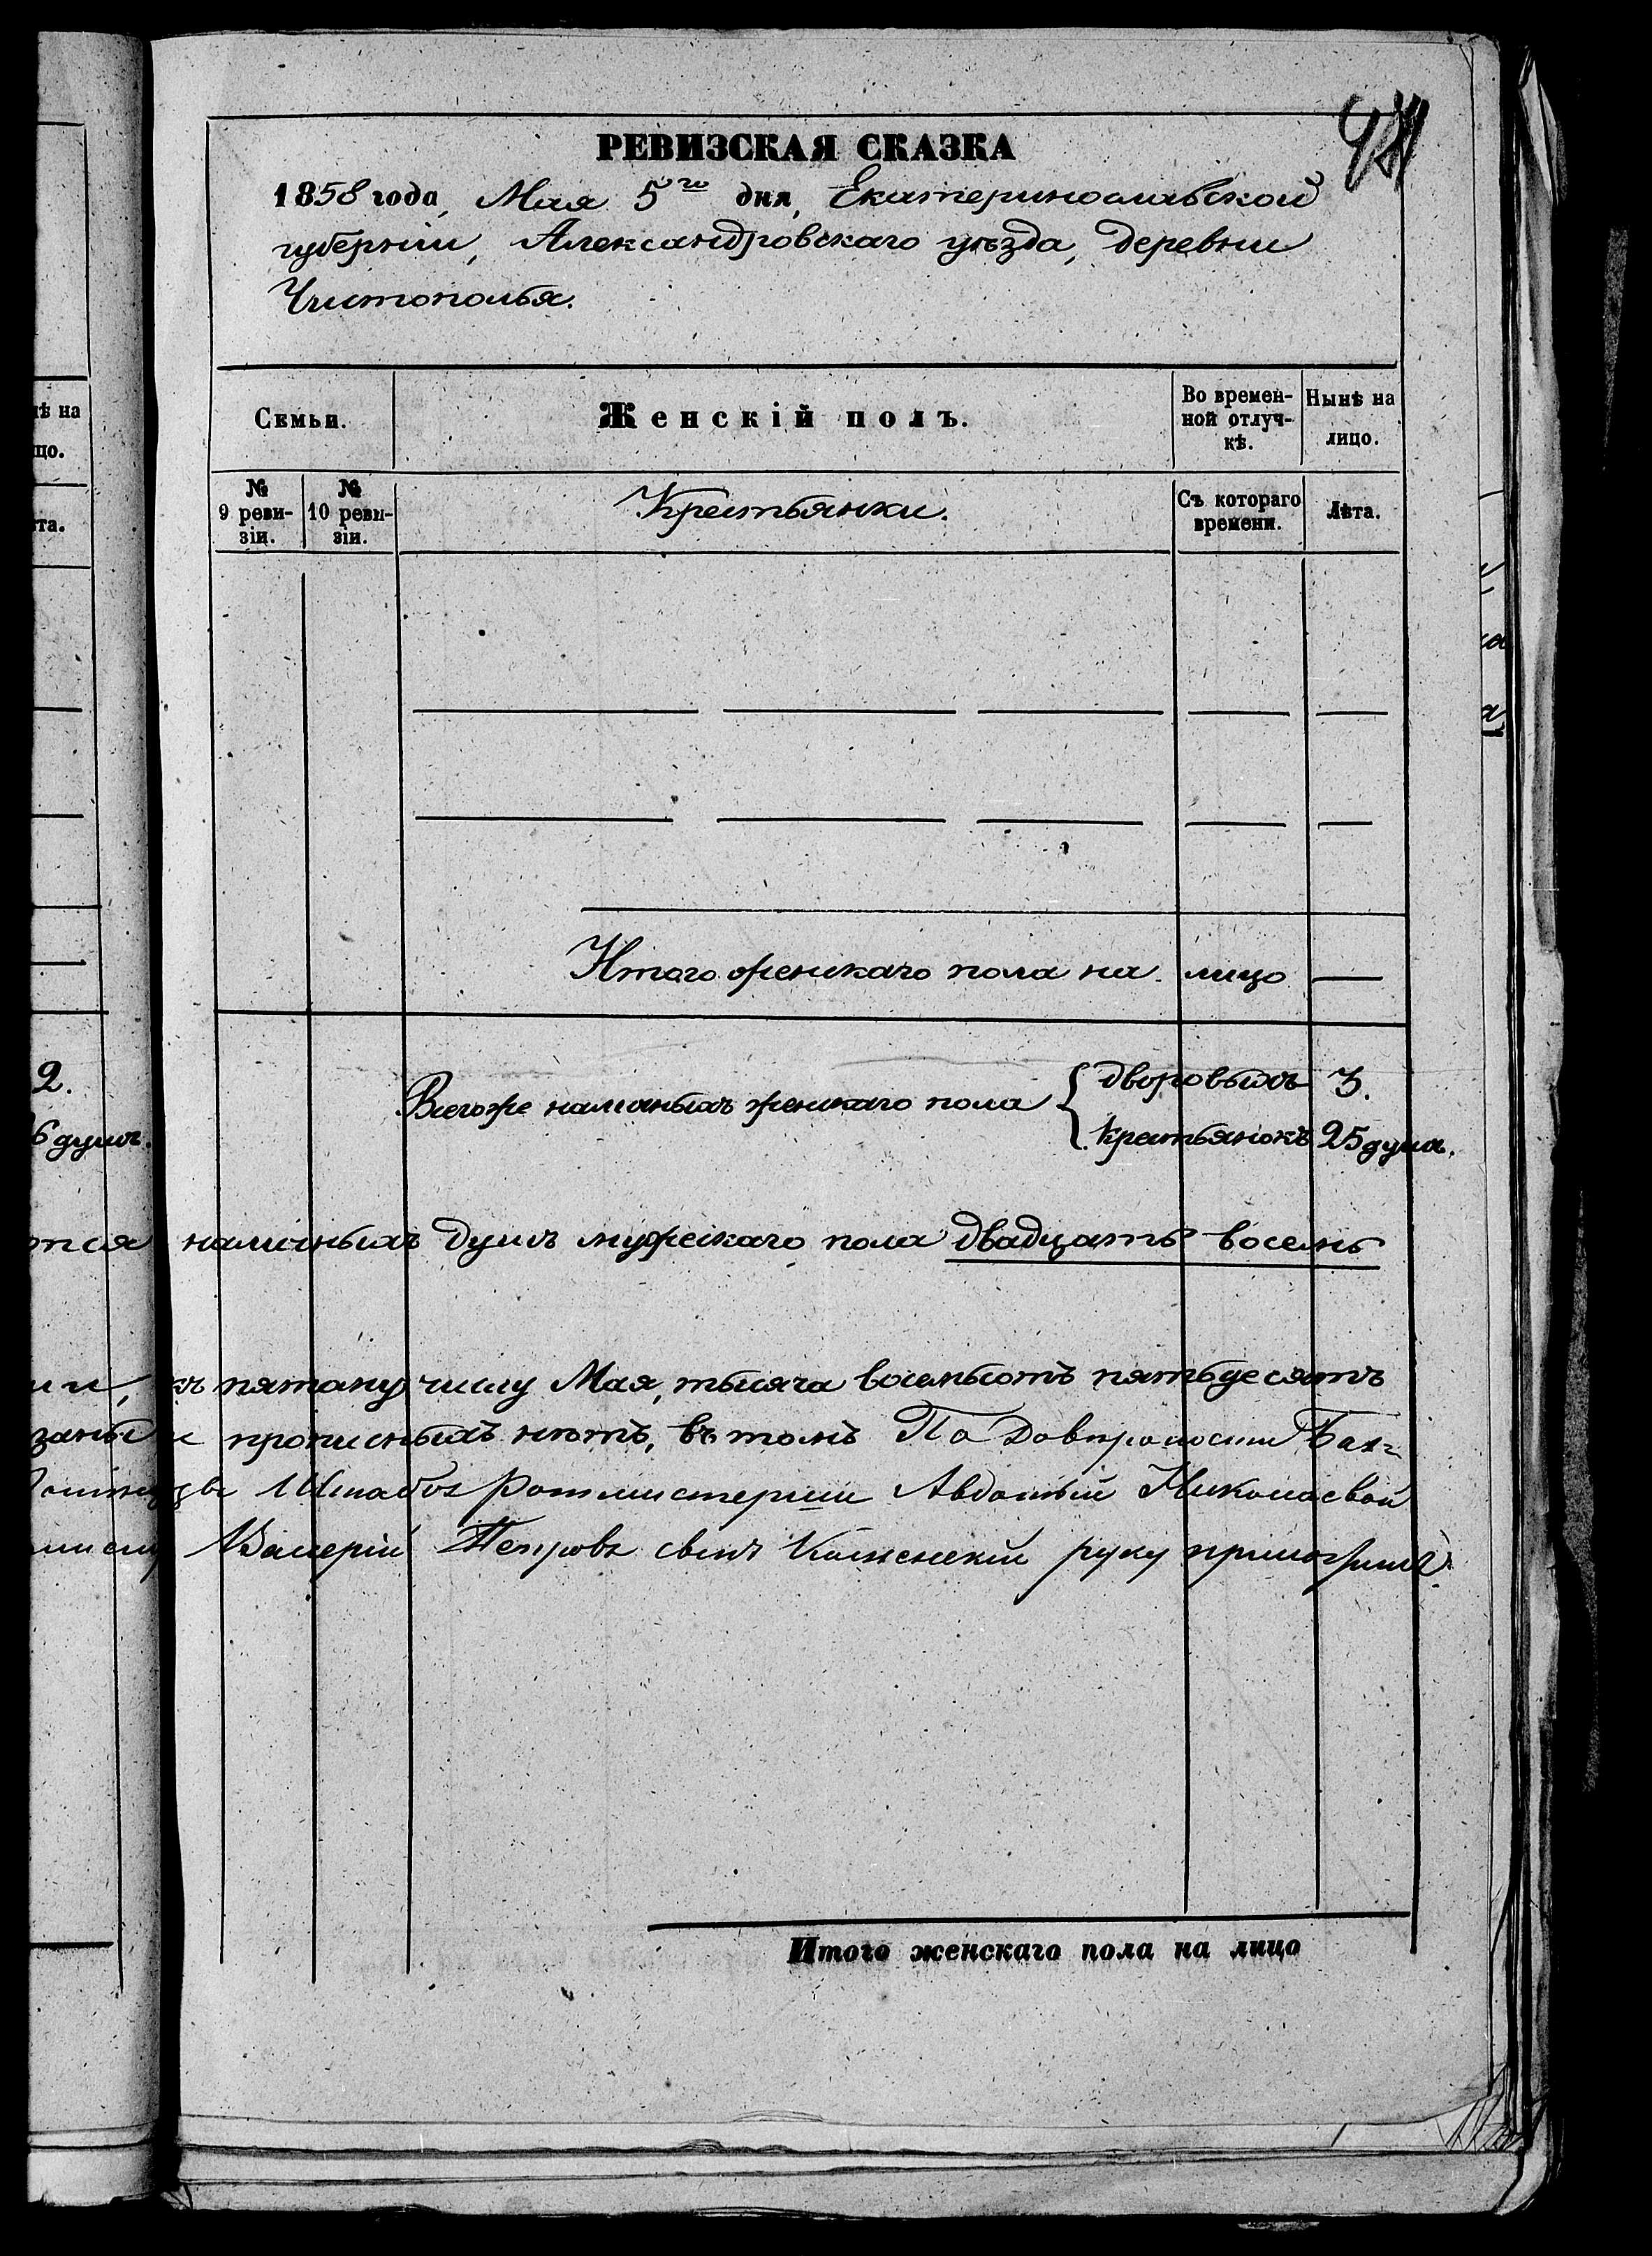 РЕВИЗСКАЯ СКАЗКА
1858 года, Мая 5го дня, Екатеринославской
губернiи, Александровскаго уѣзда, деревни
Чистополья.
ѣ на
цо.
та.
Семьи.
Женскiй полъ.
Во времен-
ной отлуч-
кѣ.
Нынѣ на
лицо.
№
9 реви-
зiи.
№
10 реви-
зiи.
Крестьянки.
Съ котораго
времени.
Лѣта.
Итого женскаго пола на лицо —
2.
6 душъ.
Всего же наличныхъ женскаго пола { дворовыхъ 3.
крестьянокъ 25 душъ.
тся наличныхъ душъ мужескаго пола двадцать восемь
ии, къ пятому числу Мая, тысяча восемьсотъ пятьдесятъ
и прописныхъ нѣтъ, въ томъ По Доверенности
Штабъ Ротмистерши Авдотьи Николаевой
Валерiй Петровъ сынъ руку приложилъ.
Итого женскаго пола на лицо